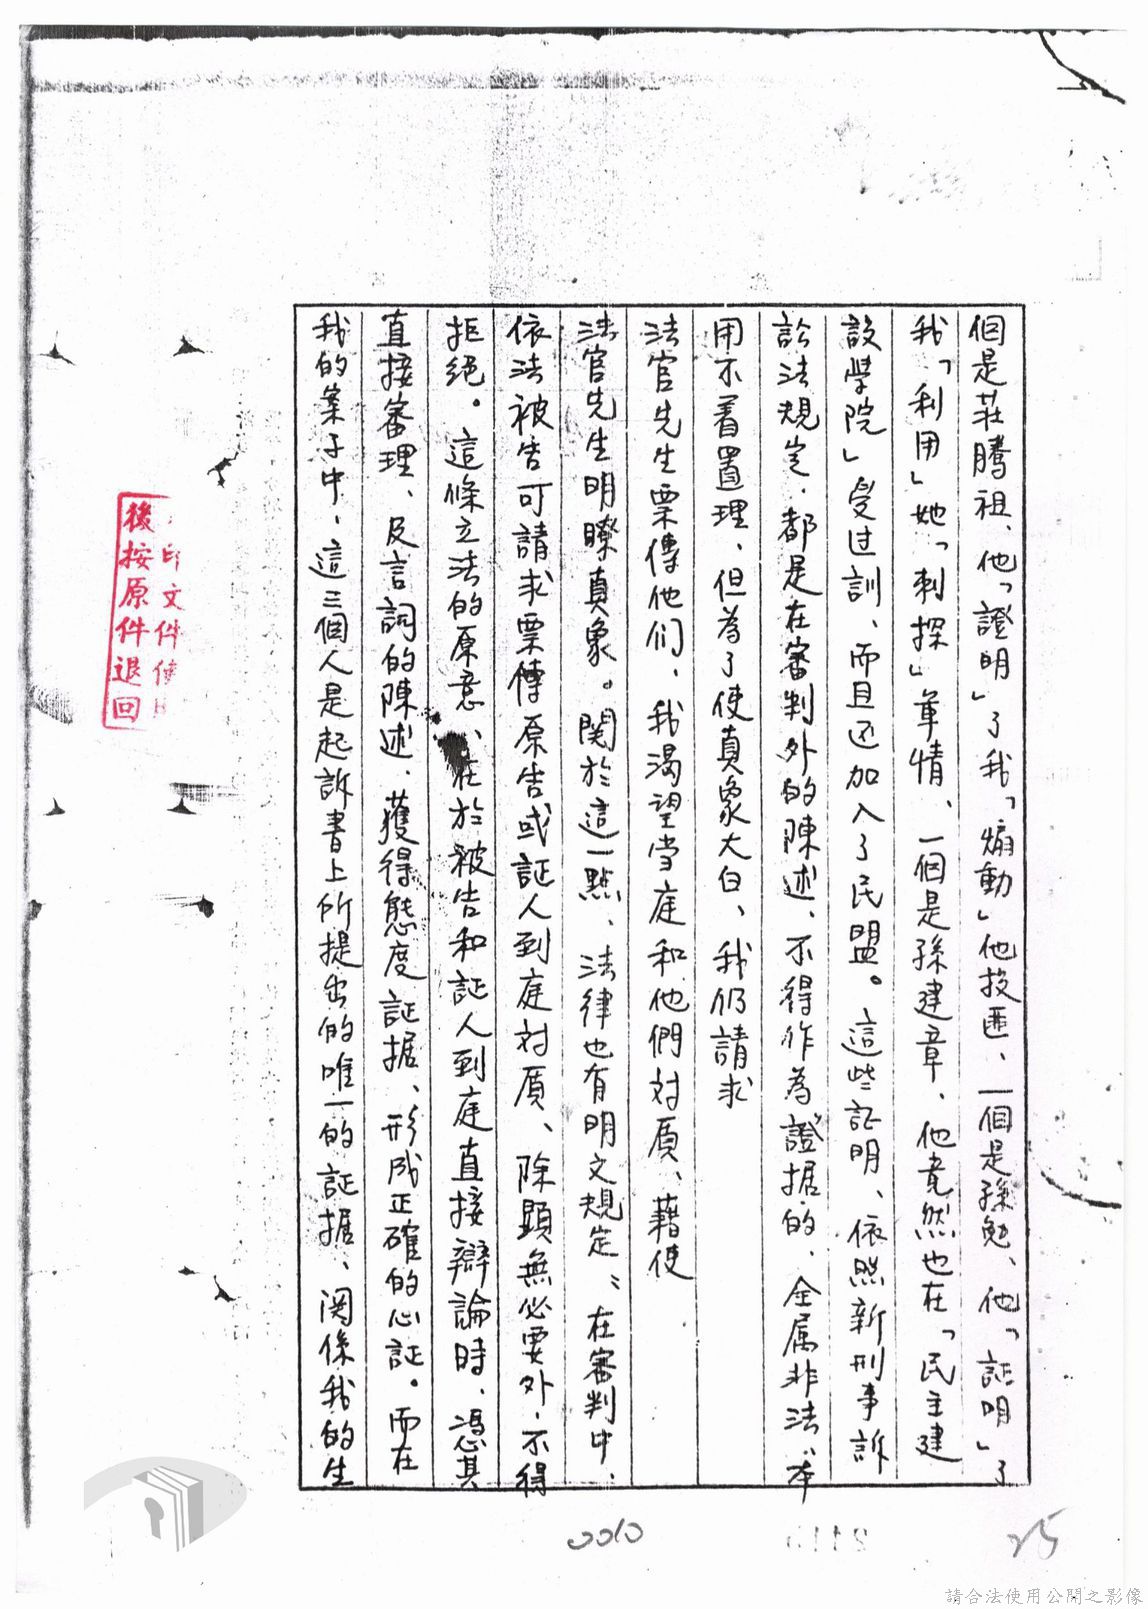 個是莊騰祖、他「證明」了我「煽動」他投匪、一個是孫勉、他「証明」了
我「利用」她「刺探」軍情、一個是孫建章、他竟然也在「民主建
設學院」受过訓、而且还加入了民盟。這些証明、依照新刑事訴
訟法規定、都是在審判外的陳述、不得作為證据的、全属非法、本
用不着置理、但為了使真象大白、我仍請求
法官先生票傳他们、我渴望当庭和他們対質、藉使
法官先生明瞭真象。関於這一點、法律也有明文規定：在審判中、
依法被告可請求票傳原告或証人到庭対質、除顕無必要外、不得
拒絕。這條立法的原意、在於被告和証人到庭直接辯論時、憑其
直接審理、及言詞的陳述、獲得態度証据、形成正確的心証。而在
我的案子中、這三個人是起訴書上所提出的唯一的証据、関係我的生
印文件使
後按原件退回
0010
25
請合法使用公開之影像